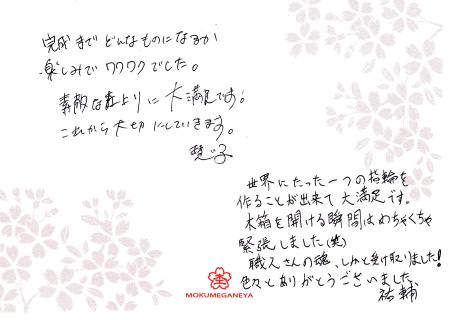 完成までどんなものになるか
楽しみでワクワクでした。
素敵な仕上りに大満足です!
これから大切にしていきます。
世界にたった一つの指輪を
作ることが出来て大満足です。
木箱を開ける瞬間はめちゃくちゃ
緊張しました(笑)
職人さんの魂、しかと受け取りました!
色々とありがとうございました、
祐輔
MOKUMEGANEYA